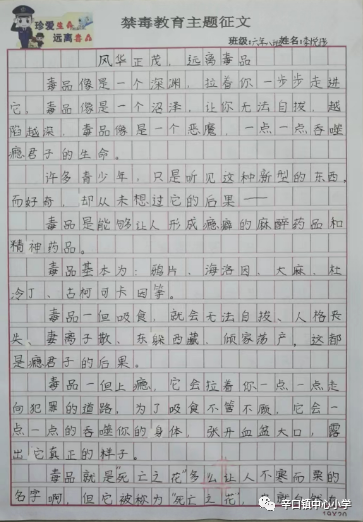 珍爱生命
远离毒品
禁毒教育主题征文
班级:六年 姓名:李
风华正茂，远离毒品
毒品像是一个深渊，拉着你一步步走进
它，毒品像是一个沼泽，让你无法自拔，越
陷越深，毒品像是一个恶魔，一点一点吞噬
瘾君子的生命。
许多青少年，只是听见这种新型的东西，
而好奇，却从未想过它的后果——
毒品是能够让人形成瘾癖的麻醉药品和
精神药品。
毒品基本为：鸦片、海洛因、大麻、杜
冷丁、古柯可卡因等。
毒品一但吸食，就会无法自拔、人格丧
失、妻离子散、东躲西藏，倾家荡产。这都
是瘾君子的后果。
毒品一但上瘾，它会拉着你一点一点走
向犯罪的道路，为了吸食不管不顾，它会一
点一点的吞噬你的身体，张开血盆大口，露
出它真正的样子。
毒品就是“死亡之花”多么让人不寒而栗的
名字啊，但它被称为“死亡之花”
辛口镇中心小学